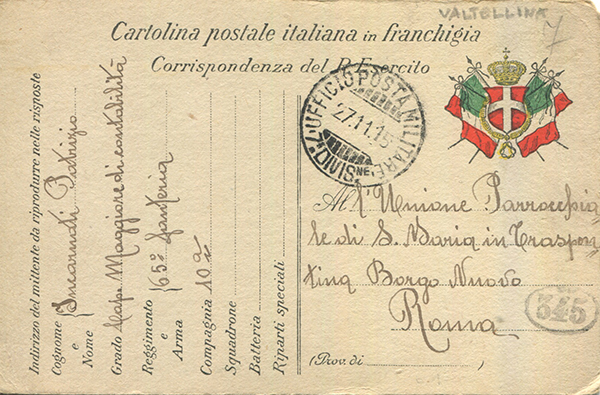 VALTELLINA
7
Cartolina postale italiana in franchigia
Corrispondenza del R. Esercito
UFFICIO POSTA MILITARE
27.11.15
DIVISIne
Indirizzo del mittente da riprodurre nelle risposte
Cognome e Nome Incarnati Patrizio
Grado Cap. Maggiore di contabilità
Reggimento e Arma 65° Fanteria
Compagnia 10a
Squadrone
Batteria
Riparti speciali
All'Unione Parrocchia
le di S. Maria in Traspon
tina Borgo Nuovo
Roma
345
(Prov. di )